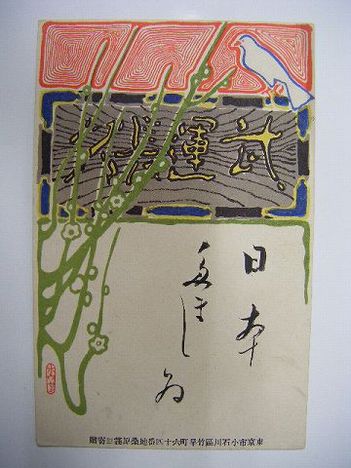 武運長久
日本
多ましゐ
東京市小石川區竹早町六十四番地桑原 寄贈